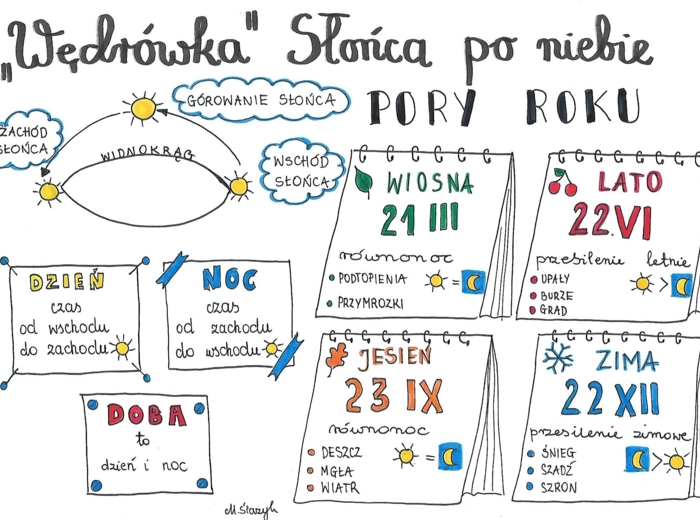 „Wędrówka" Słońca po niebie
GÓROWANIE SŁOŃCA
ZACHÓD
SŁOŃCA
WIDNOKRĄG
WSCHÓD
SŁOŃCA
DZIEŃ
czas
od wschodu
do zachodu
NOC
czas
od zachodu
do wschodu
DOBA
to
dzień i noc
PORY ROKU
WIOSNA
21 III
równonoc
PODTOPIENIA
=
PRZYMROZKI
LATO
22.VI
przesilenie letnie
UPAŁY
>
BURZE
GRAD
JESIEŃ
23 IX
równonoc
DESZCZ
=
MGŁA
WIATR
ZIMA
22 XII
przesilenie zimowe
ŚNIEG
>
SZADŹ
SZRON